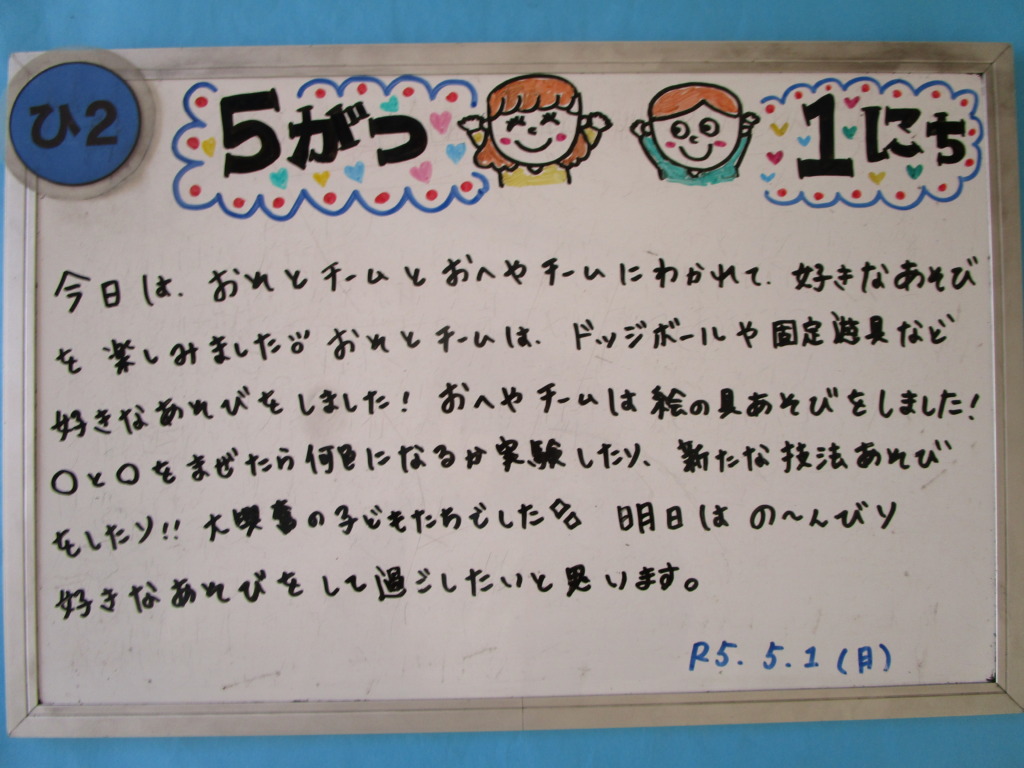 ひ2
5がつ 1にち
今日は、おそとチームとおへやチームにわかれて、好きなあそび
を楽しみました。おそとチームは、ドッジボールや固定遊具など
好きなあそびをしました！おへやチームは絵の具あそびをしました！
〇と〇をまぜたら何色になるか実験したり、新たな技法あそび
をしたり!!大興奮の子どもたちでした 明日はの〜んびり
好きなあそびをして過ごしたいと思います。
R5.5.1(月)